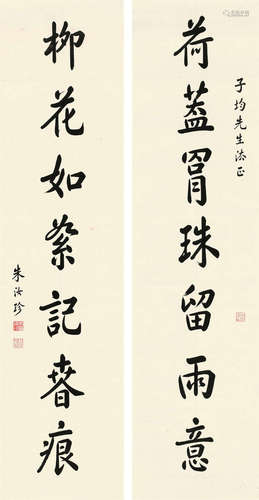 子均先生法正
荷蓋罥珠留雨意
柳花如絮記春痕
朱汝珍